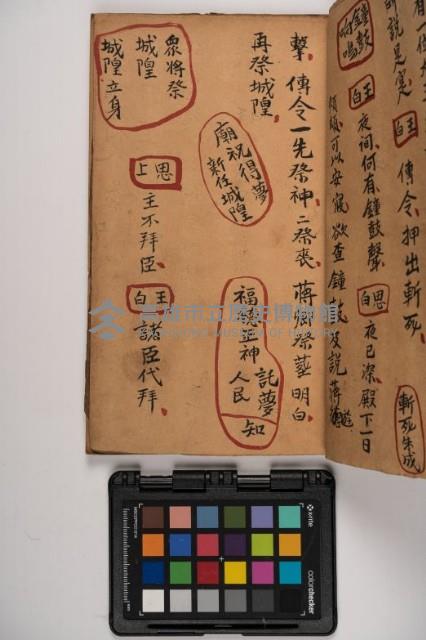 鐘鼓
响鳴
師說是寔
王白
傳令押出斬死
斬死朱成
王白
夜间何有鐘鼓聲
思白
夜已深殿下一日
煩惱可以安寢欲查鐘鼓及說蔣
擊傳令一先祭神二祭喪蔣
祭塟明白
再祭城隍
廟祝得夢
新任城隍
福德正神
託夢
人民
知
思上
主不拜臣
王白
諸臣代拜
眾將祭
城隍
城隍立身
高雄市立歷史博物館
KAOHSIUNG MUSEUM OF HISTORY
x-rite
colorchecker